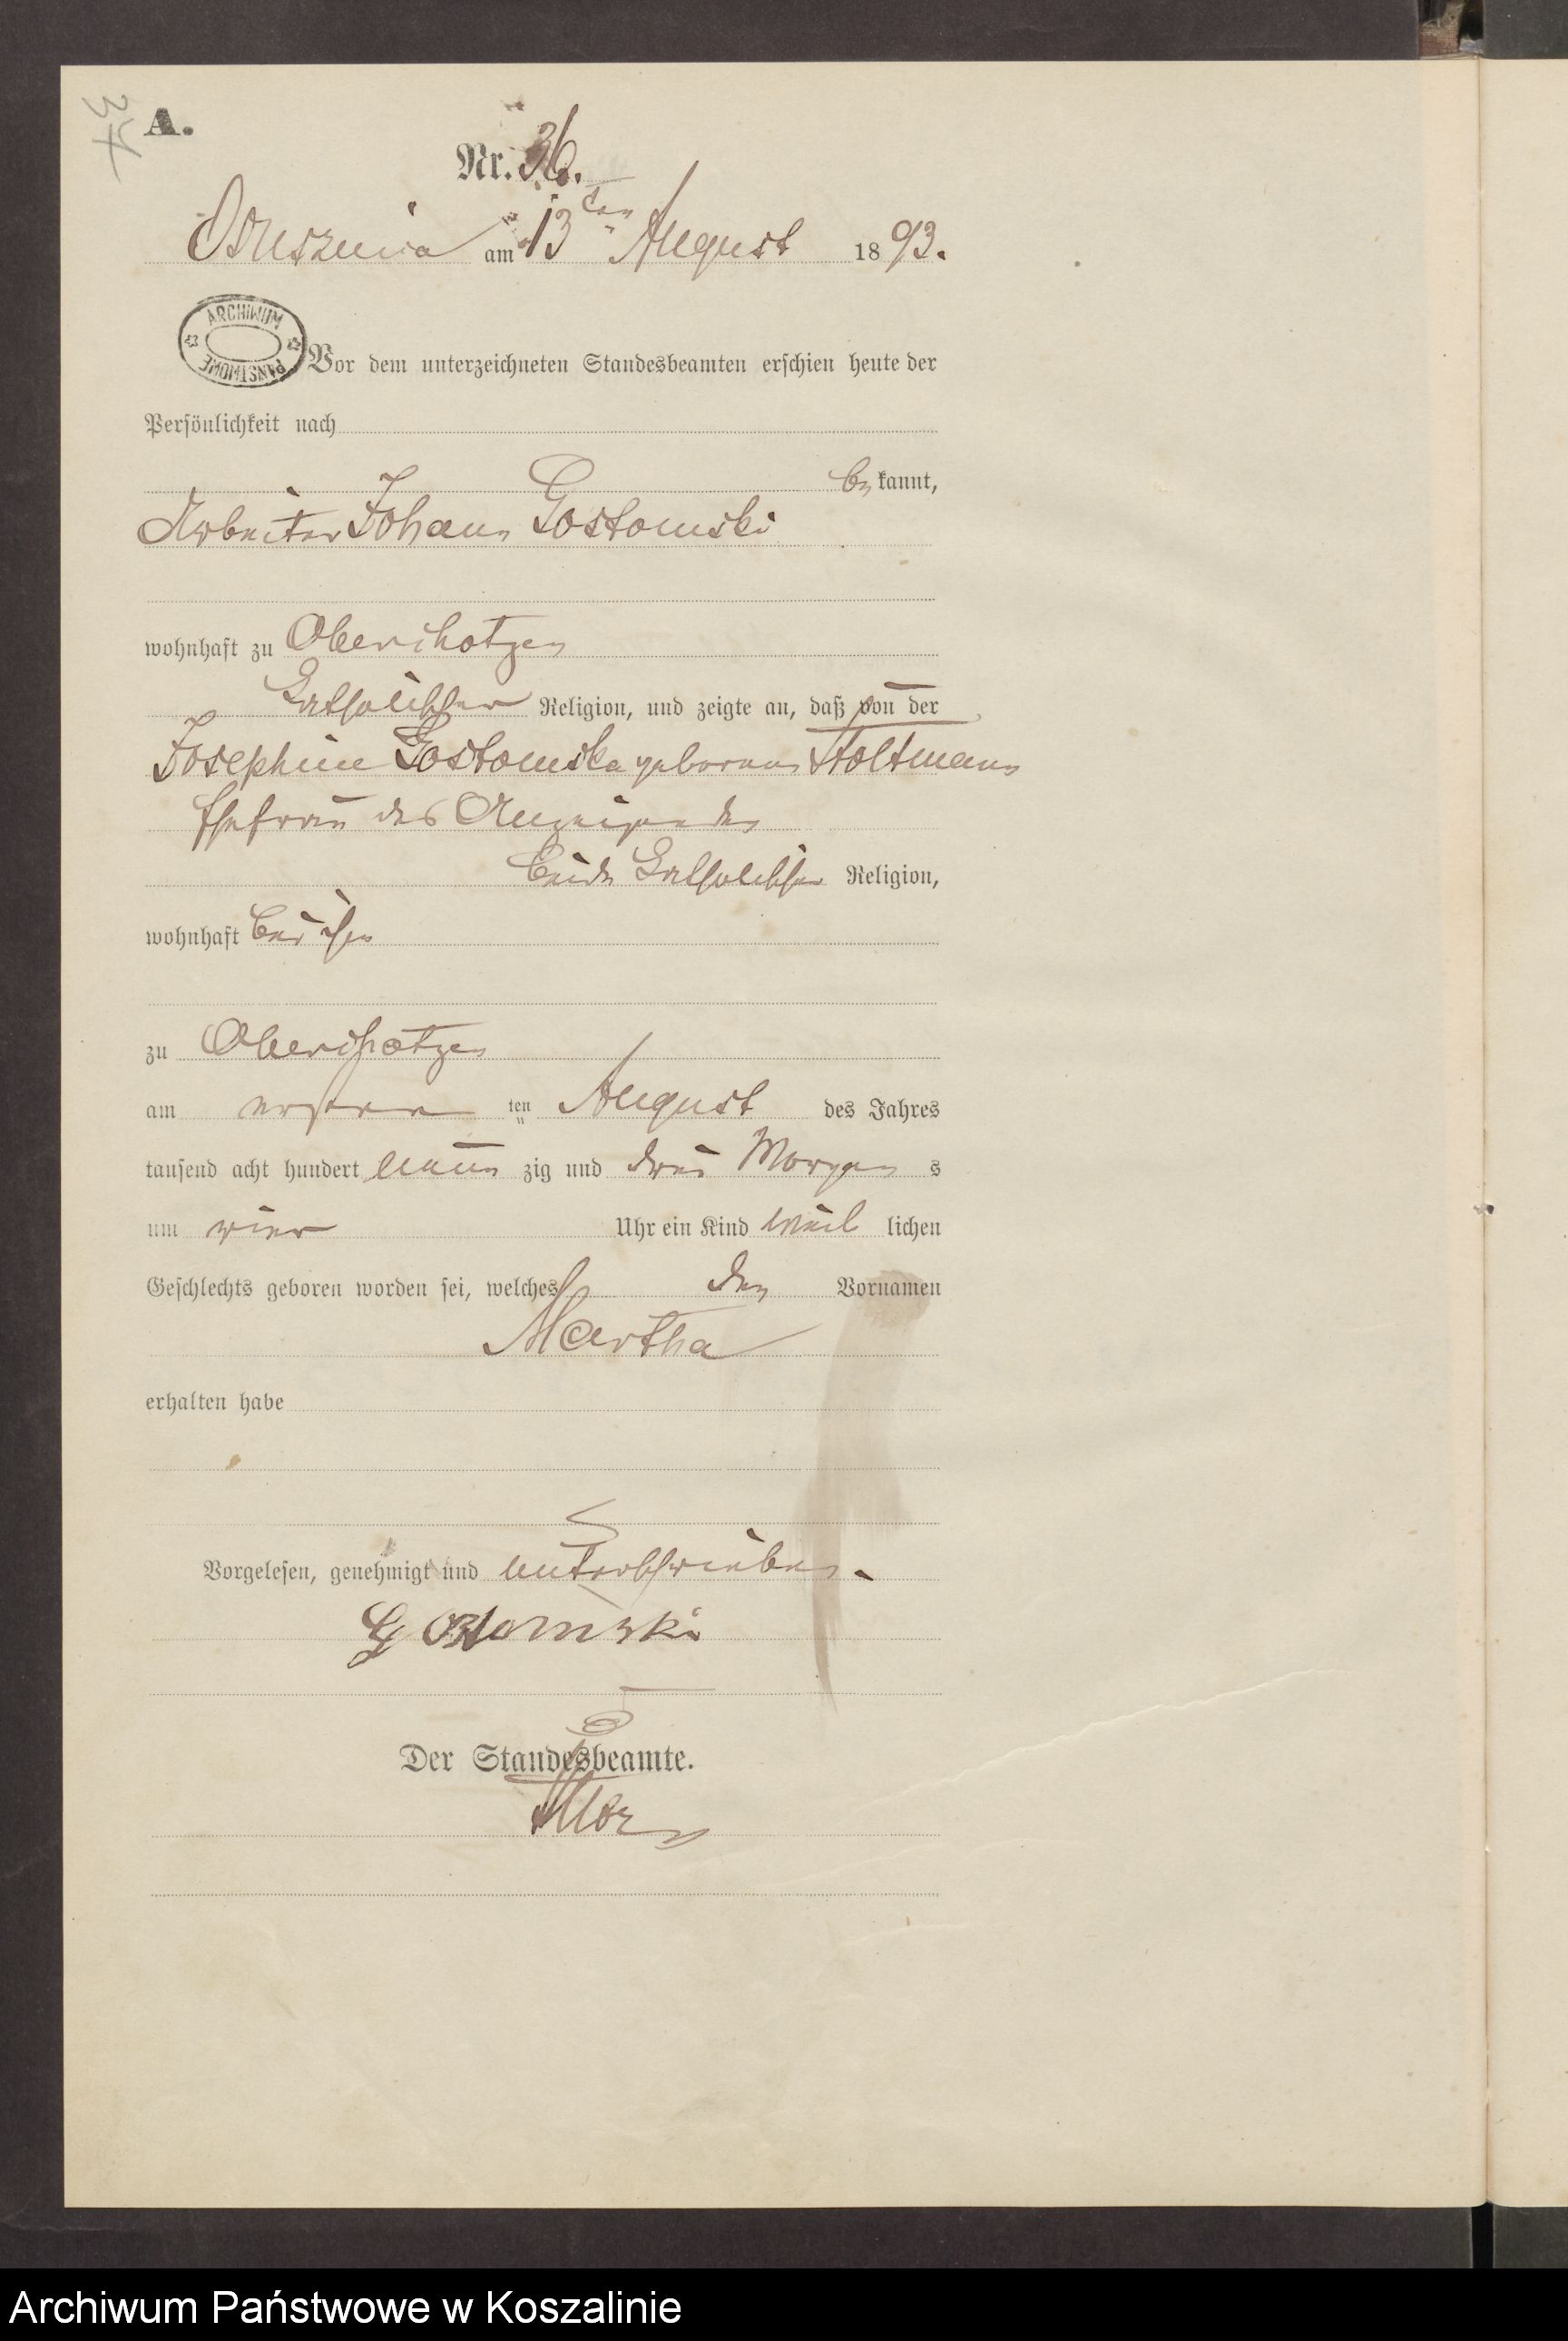 34
A.
Nr. 36.
Ossusznica am 13ten August 1893.
ARCHIWUM PAŃSTWOWE
Vor dem unterzeichneten Standesbeamten erschien heute der
Persönlichkeit nach
be kannt,
Arbeiter Johann Gostomski
wohnhaft zu Oberschotzen
katholischer Religion, und zeigte an, daß von der
Josephine Gostomska geborenen Stoltmann
Ehefrau des Anzeigenden
beide katholischer Religion,
wohnhaft bei ihm
zu Oberschotzen
am ersten ten August des Jahres
tausend acht hundert neun zig und drei Morgen s
um vier Uhr ein Kind weib lichen
Geschlechts geboren worden sei, welches den Vornamen
Martha
erhalten habe
Vorgelesen, genehmigt und unterschrieben.
Gostomski
Der Standesbeamte.
Archiwum Państwowe w Koszalinie